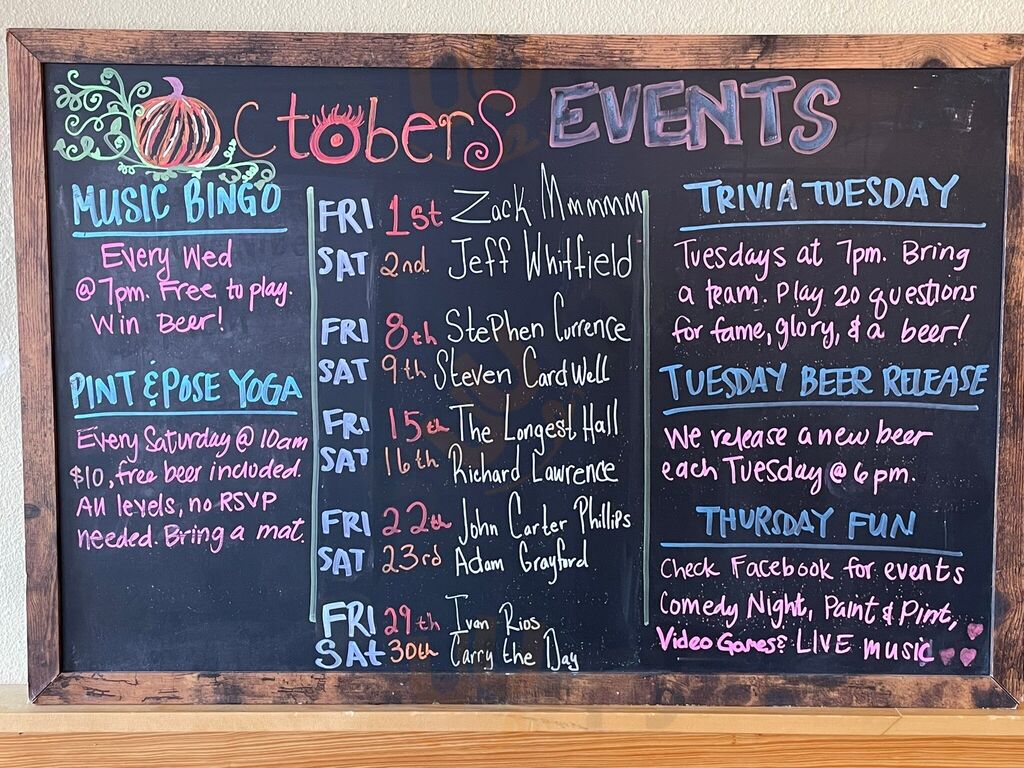 OctoberS EVENTS
MUSIC BINGO
Every Wed
@ 7pm. Free to play.
Win Beer!
PINT & POSE YOGA
Every Saturday @ 10am
$10, free beer included.
All levels, no RSVP
needed. Bring a mat.
FRI 1st Zack Mmmmm
SAT 2nd Jeff Whitfield
FRI 8th Stephen Currence
SAT 9th Steven Cardwell
FRI 15th The Longest Hall
SAT 16th Richard Lawrence
FRI 22th John Carter Phillips
SAT 23rd Adam Grayford
FRI 29th Ivan Rios
SAt 30th Carry the Day
TRIVIA TUESDAY
Tuesdays at 7pm. Bring
a team. Play 20 questions
for fame, glory, & a beer!
TUESDAY BEER RELEASE
We release a new beer
each Tuesday @ 6pm.
THURSDAY FUN
Check Facebook for events
Comedy Night, Paint & Pint,
Video Games & LIVE music